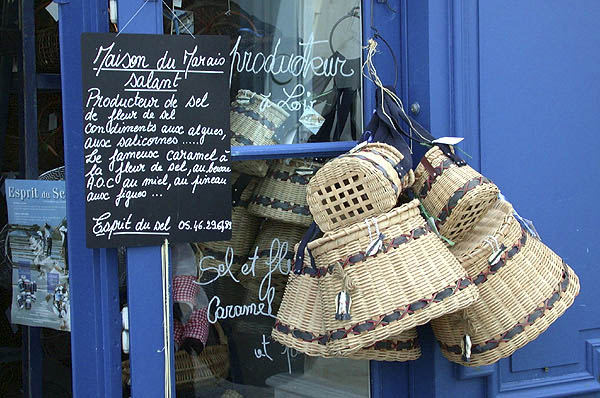 Maison du Marais
salant
Producteur de sel
de fleur de sel
Condiments aux algues,
aux salicornes .....
Le fameux caramel à
la fleur de sel, au beurre
A.O.C au miel, au pineau
aux figues ...
Esprit du sel 05.46.29.
producteur
à Loix
Esprit du Sel
Sel et fl
Caramel
et